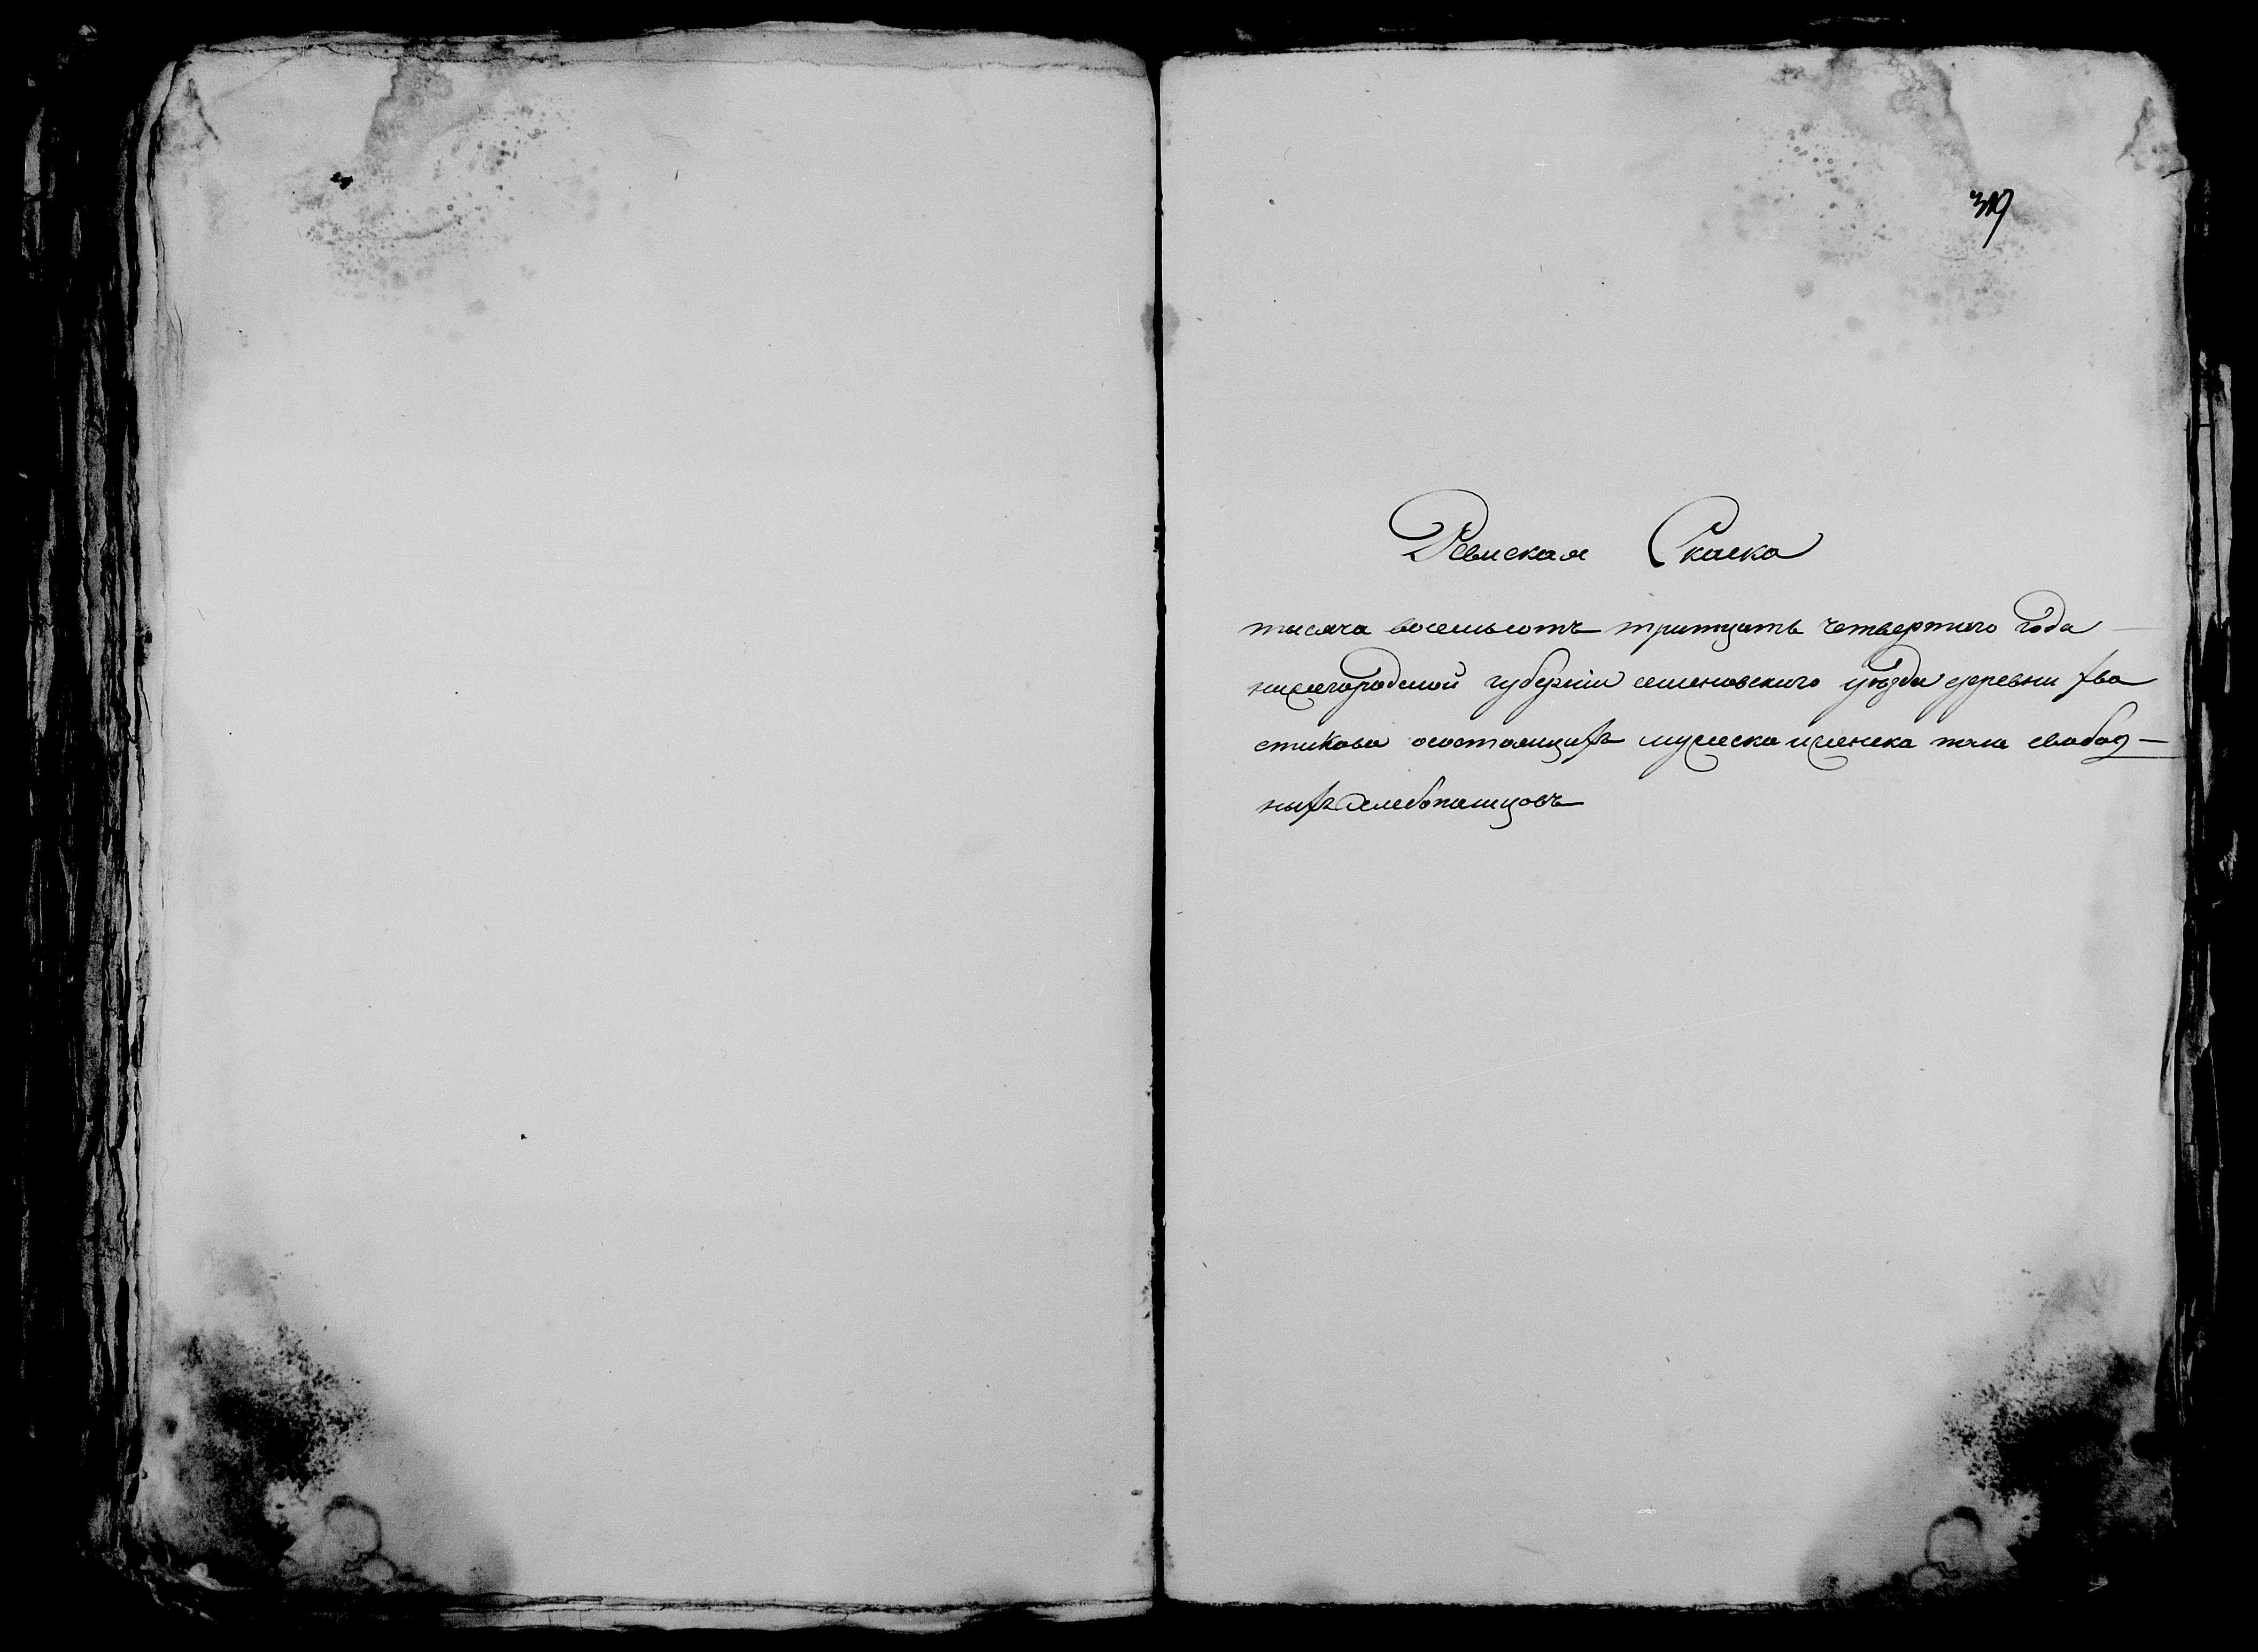 319
Ревиская Скаска
тысяча восемьсотъ тритцать четвертаго года
нижегородской губерніи семеновского уѣзда деревни хва
стикова осостоящихъ мужеска иженска пола свабод
ныхъ хлебопашцовъ